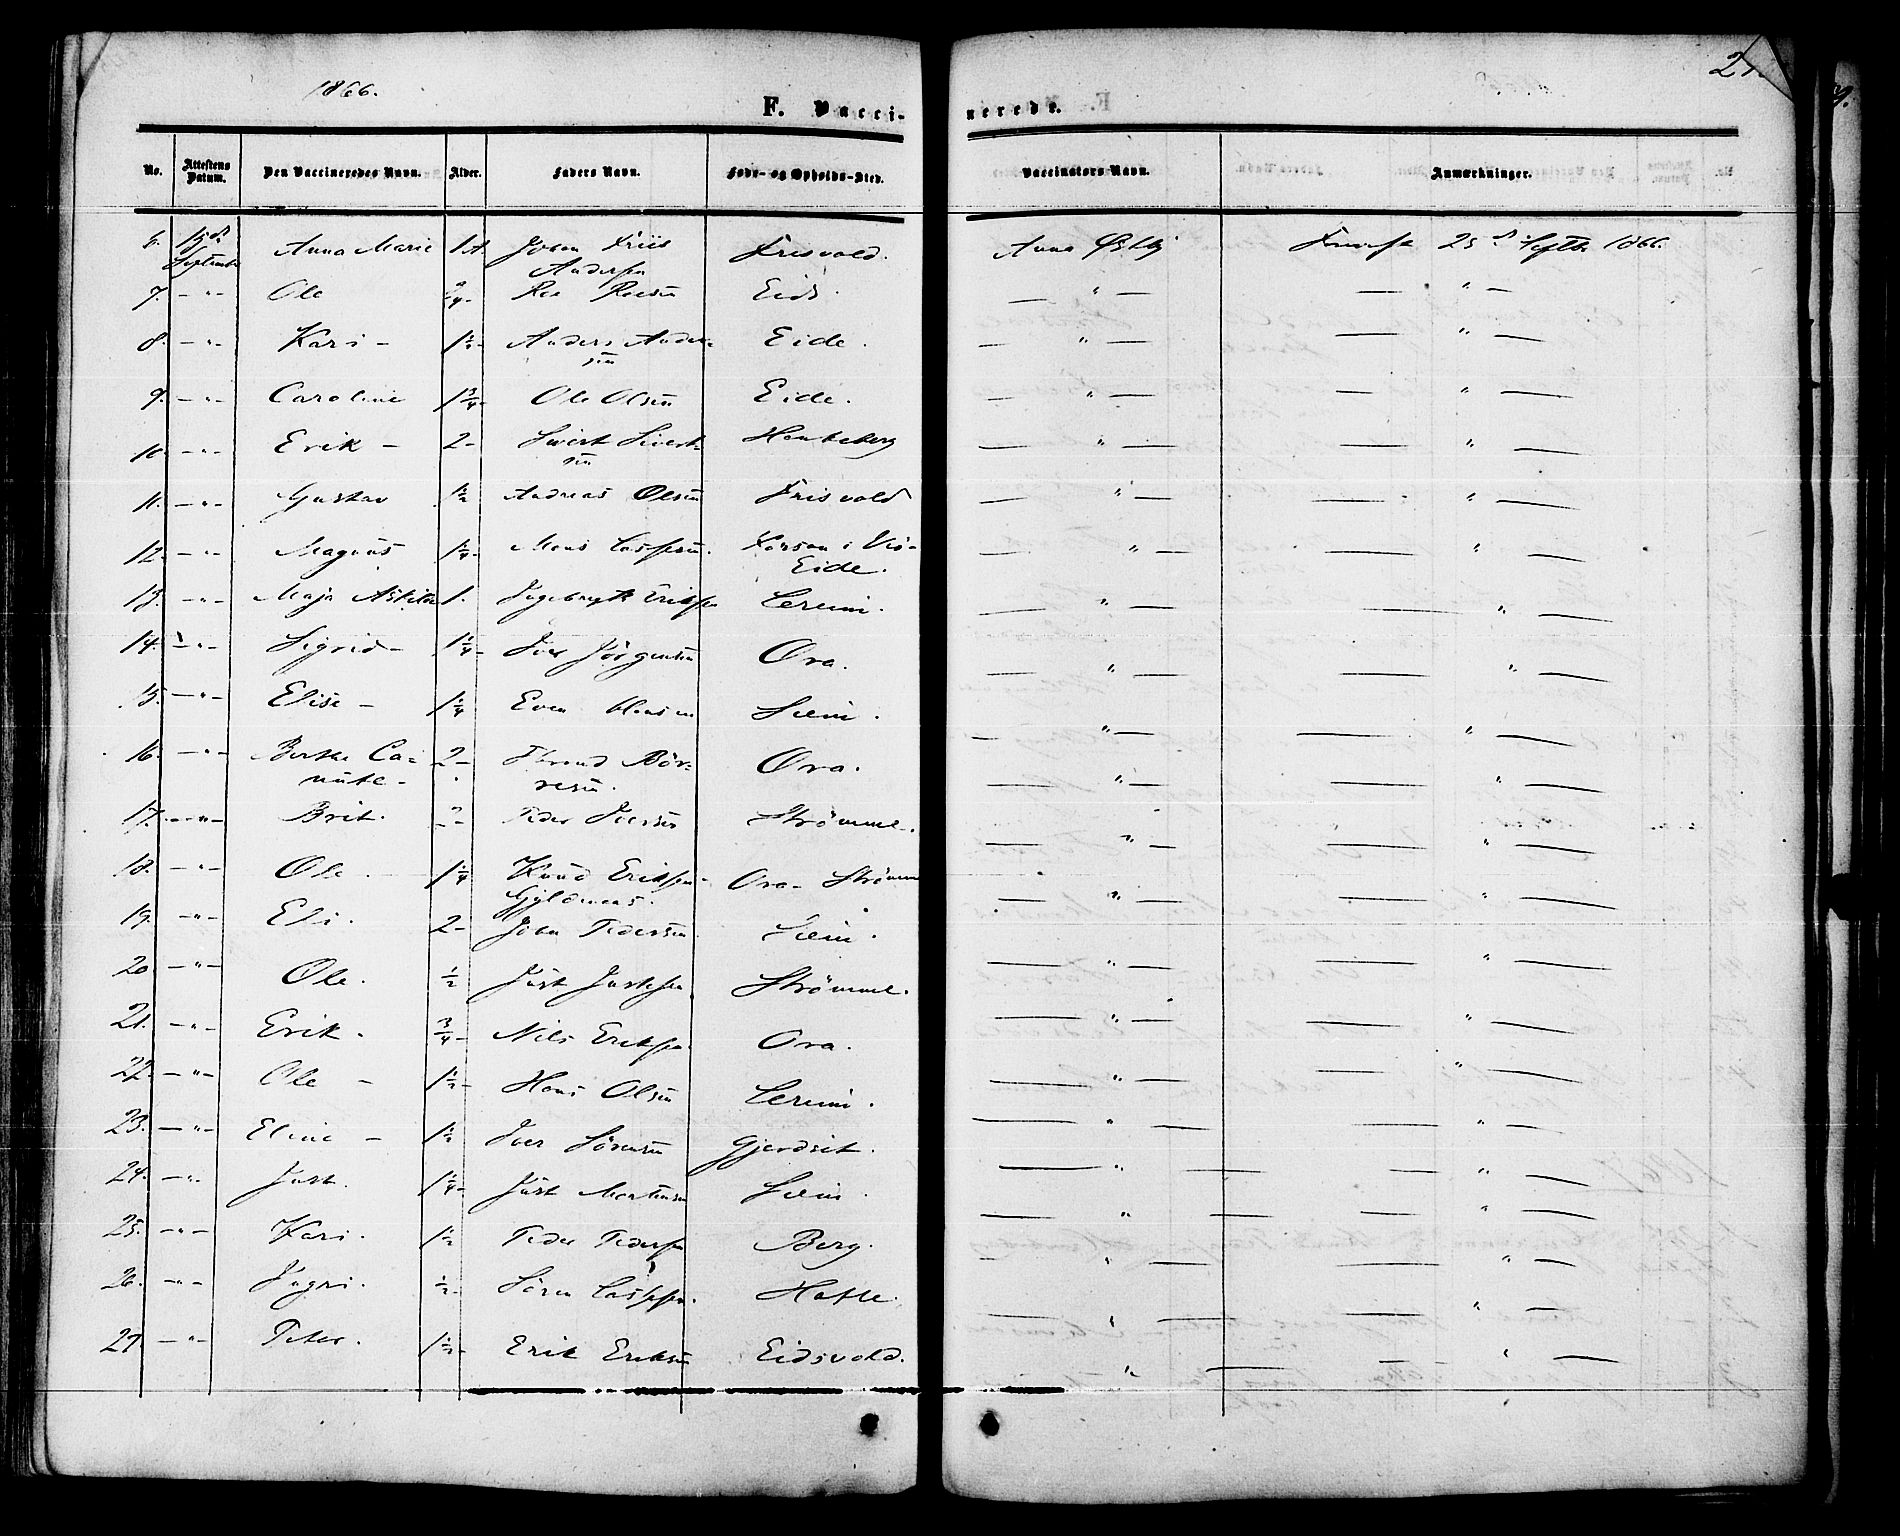 1866.
F. Vaccinerede.
No. Attestens Datum. Den Vaccineredes Navn. Alder. Faders Navn. Føde- og Opholds-Sted. Vaccinators Navn. Anmærkninger.
6. 15de September Anna Marie 1 A. Johan Friis Andersen Frisvold. Anna 25de Septbr 1866.
7. — " — Ole — " — — " —
8. — " — Kari — 1½ Anders Andersen Eide. — " — — " —
9. — " — Caroline 1¾ Ole Olsen Eide. — " — — " —
10. — " — Erik — 2 — Sivert Sivertsen — " — — " —
11. — " — Gustav 1½ Andreas Olsen Frisvold — " — — " —
12. — " — Magnus 1¼ Mons Caspersen. i Eide. — " — — " —
13. — " — Maja 1. Ingebrigt Eriksen Lereim. — " — — " —
14. — " — Sigrid — 1¼ Iver Jörgensen Ora. — " — — " —
15. — " — Elise — 1¼ Even Hansen Seeim. — " — — " —
16. — " — Berthe 2 — Börresen. Ora. — " — — " —
17. — " — Brit. Peder Iversen Strömme. — " — — " —
18. — " — Ole. 1¼ Knud Eriksen Gyldenaas. Ora — Strömme — " — — " —
19. — " — Eli. 2 — John Pedersen. Seeim. — " — — " —
20. — " — Ole. ½ Just Justsen. Strömme. — " — — " —
21. — " — Erik. ¾ Nils Eriksen. Ora. — " — — " —
22. — " — Ole — 1½ Hans Olsen Lereim. — " — — " —
23. — " — Eline — 1½ Iver Sörensen Gjerdset. — " — — " —
24. — " — Just. 1¼ Just Mortensen Seeim. — " — — " —
25. — " — Kari. 1½ Peder Pedersen Berg. — " — — " —
26. — " — Ingri. ½ Sören Caspersen. Hafle. — " — — " —
27. — " — Peter. 1½ Erik Eriksen Eidsvold. — " — — " —